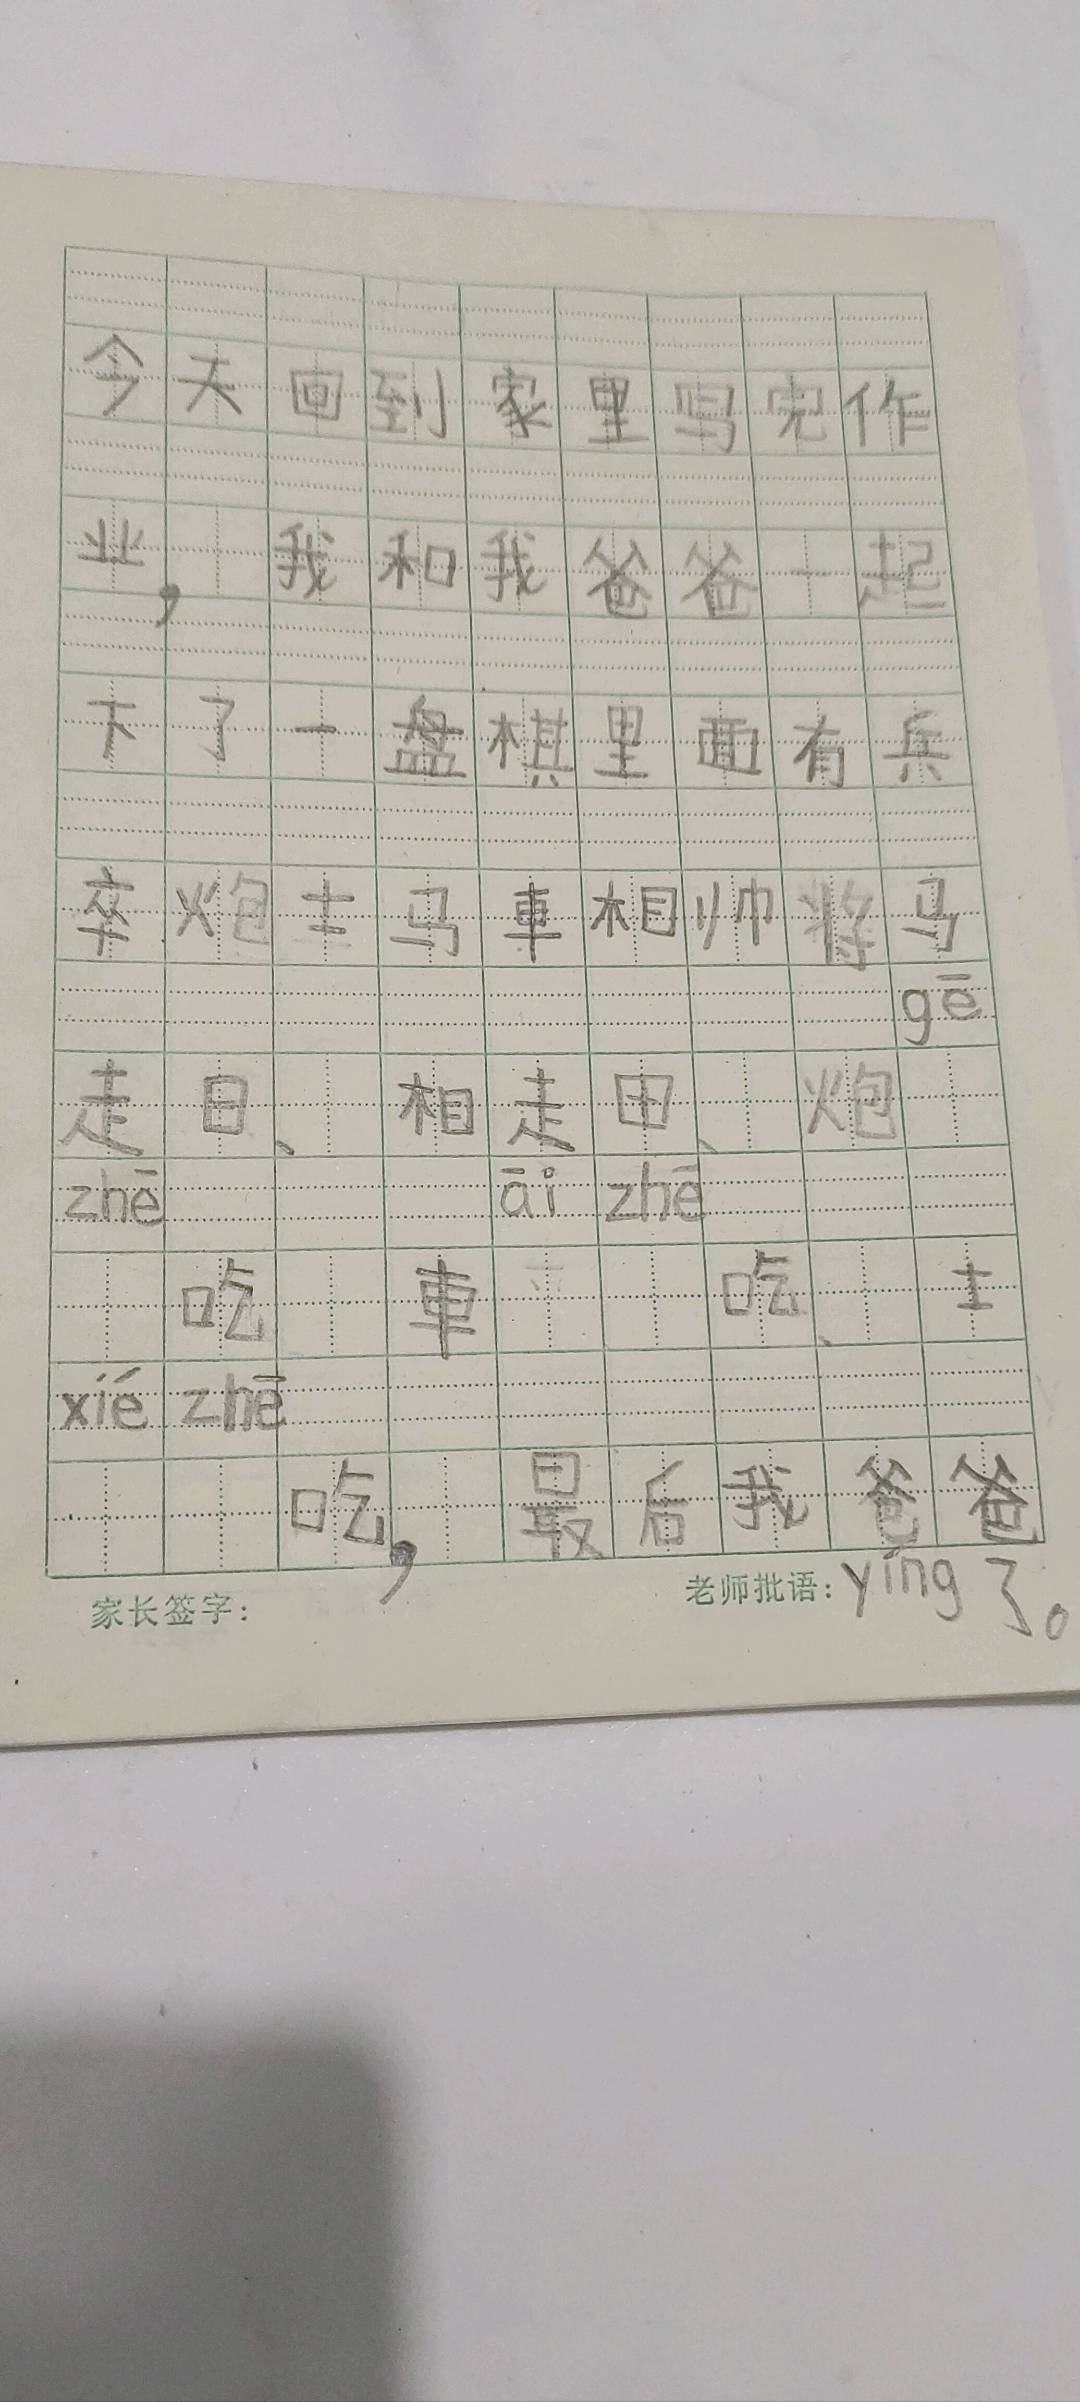 今天回到家里写完作
业，我和我爸爸一起
下了一盘棋里面有兵
卒炮士马車相帅将马
gē
走日、相走田、炮
zhē āi zhē
吃車吃、士
xié zhē
吃，最后我爸爸
家长签字：
老师批语：yíng了。